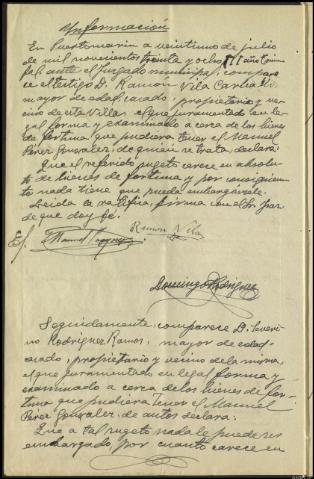 Información
En Puertomarín a veintiuno de julio
de mil novecientos treinta y ocho III año Triun
fal; ante el Juzgado municipal, compare
ce el testigo D. Ramón Vila
mayor de edad, casado, propietario y ve
cino de esta villa, el que juramentado en le
gal forma y examinado a cerca de los bienes
de fortuna que pudiera tener el Manuel
Pérez González, de quien se trata, declara:
Que el referido sugeto carece en absolu
to de bienes de fortuna y por consiguiente
nada tiene que pueda embargársele.
Leida se ratifica, firma con el Sr. Juez
de que doy fé.
Ramon Vila
Manuel
Domingo Rodriguez
Seguidamente, comparece D. Severi
no Rodríguez Ramos, mayor de edad
casado, propietario y vecino de la misma,
el que juramentado en legal forma y
examinado a cerca de los bienes de for-
tuna que pudiera tener el Manuel
Pérez González, de autos declara:
Que a tal sugeto nada le puede ser
embargado, por cuanto carece en